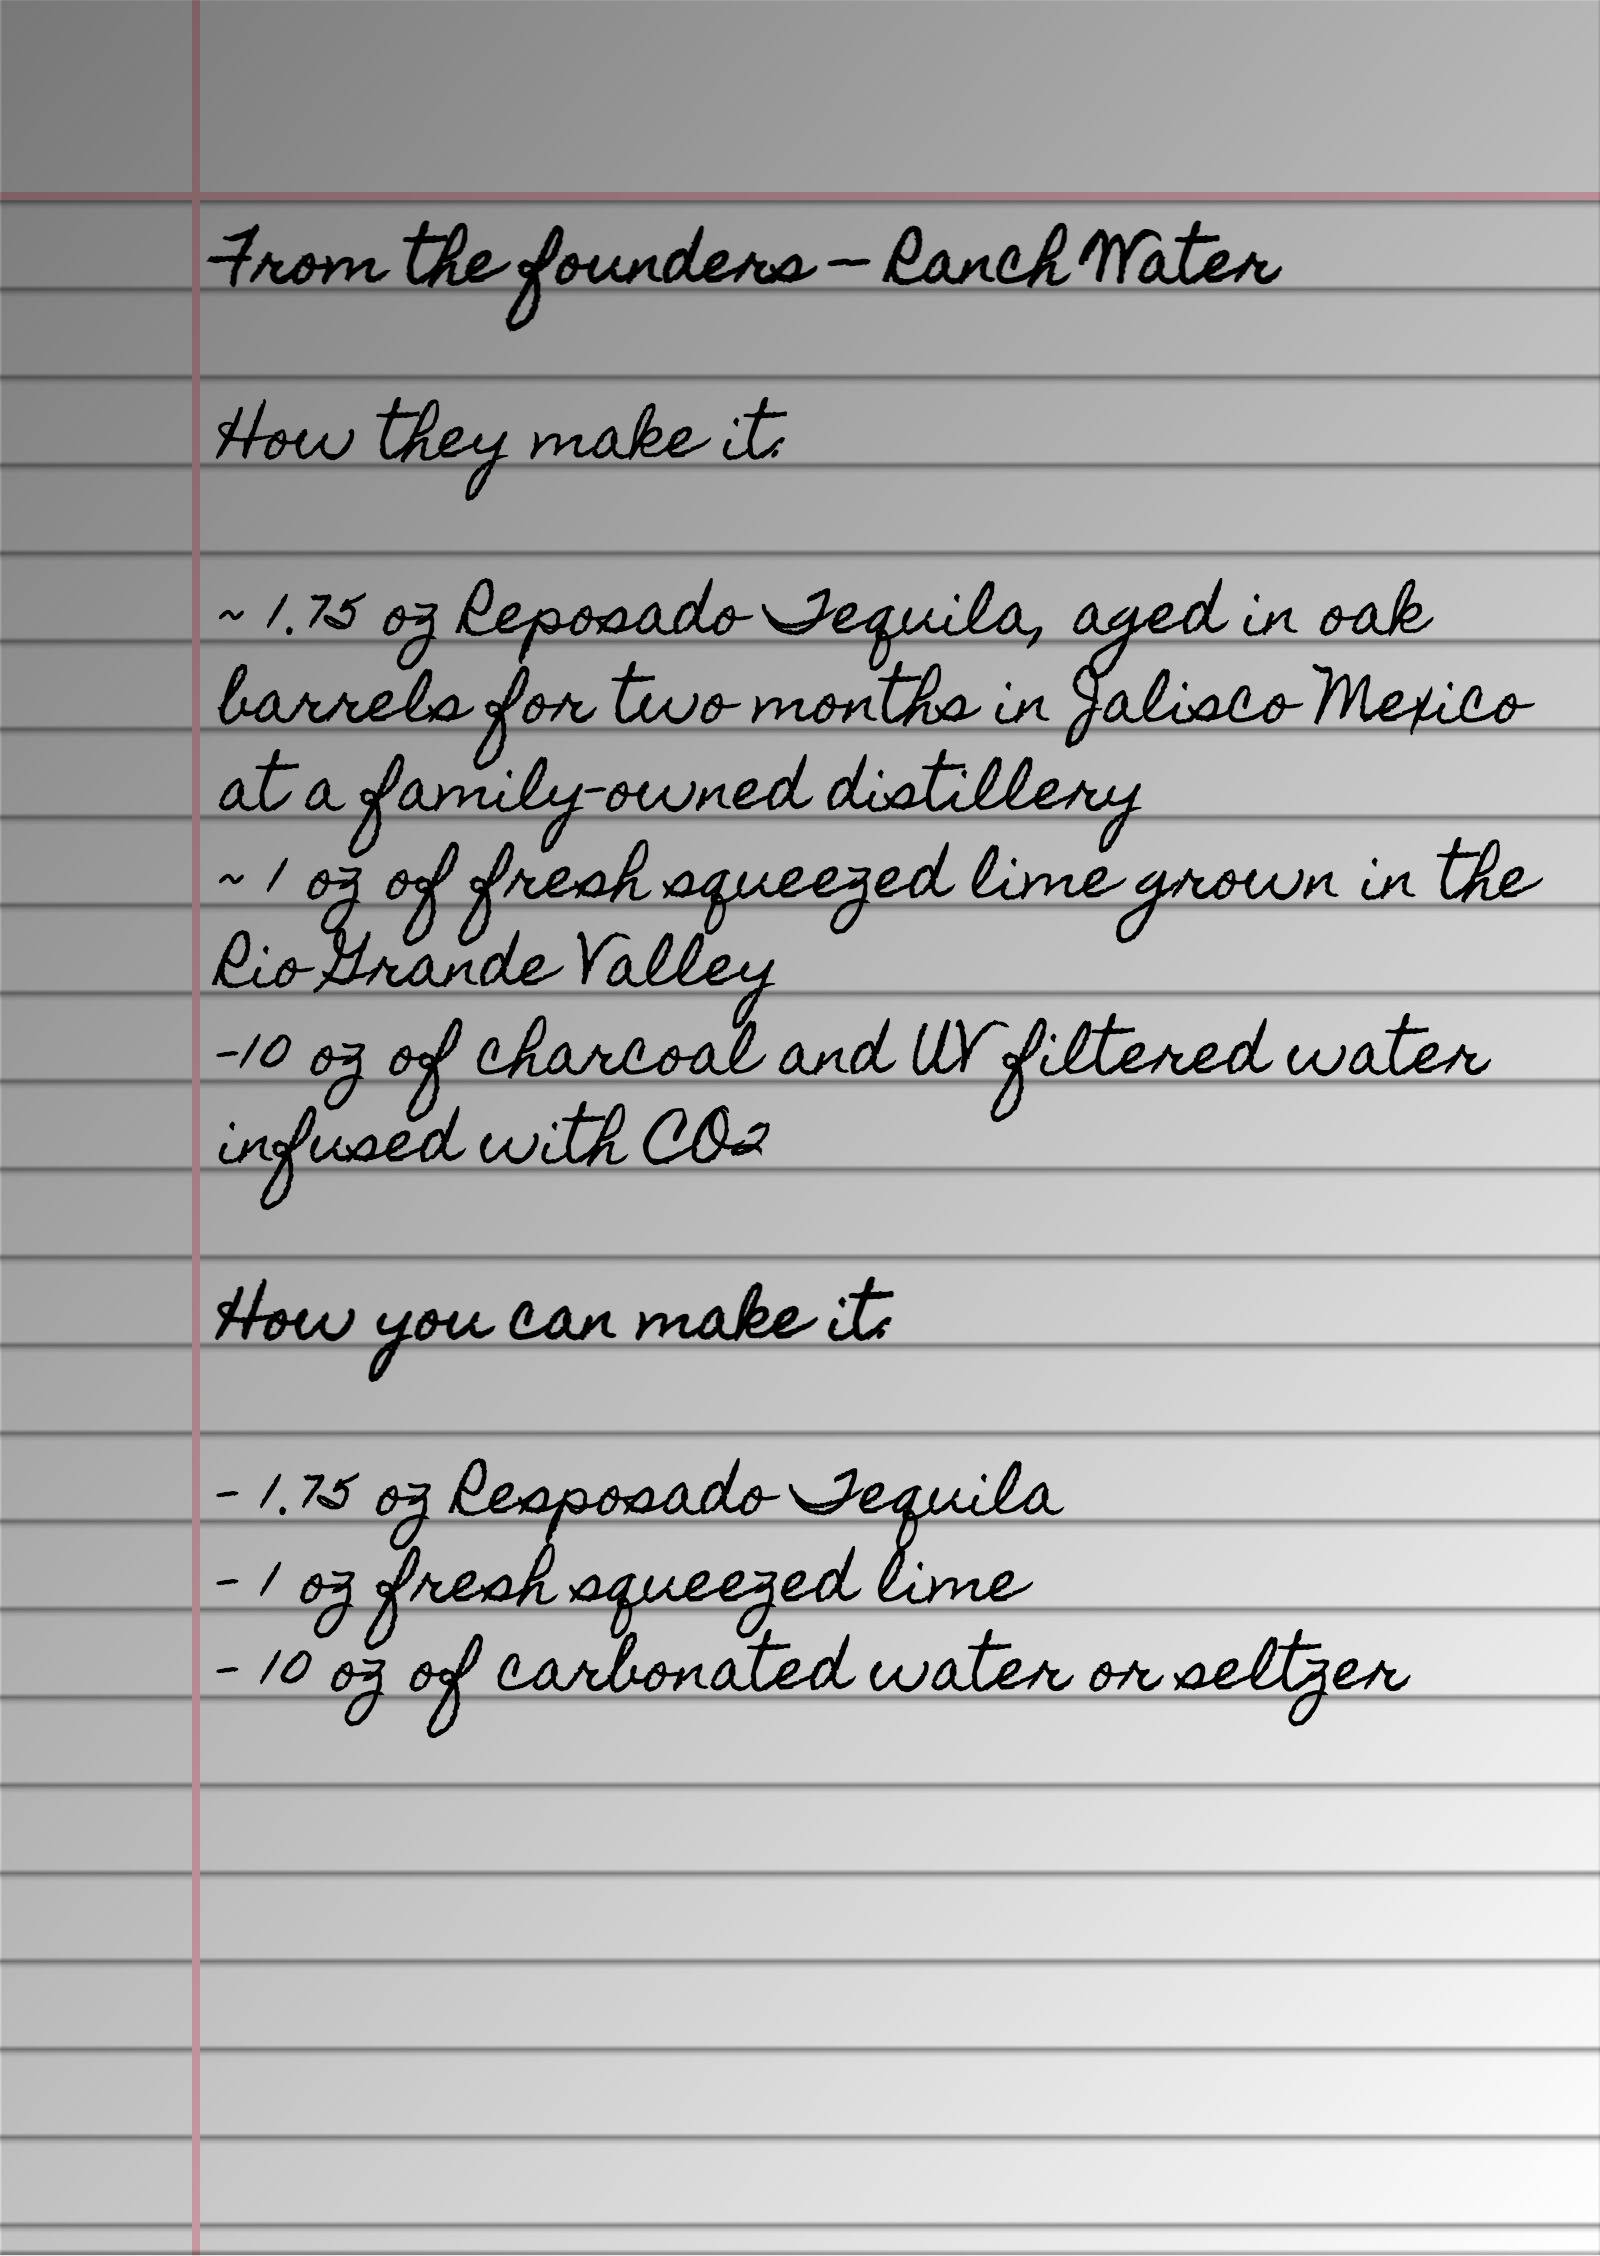 From the founders - Ranch Water
How they make it:
~ 1.75 oz Reposado Tequila, aged in oak
barrels for two months in Jalisco Mexico
at a family-owned distillery
~ 1 oz of fresh squeezed lime grown in the
Rio Grande Valley
-10 oz of charcoal and UV filtered water
infused with CO2
How you can make it:
- 1.75 oz Resposado Tequila
- 1 oz fresh squeezed lime
- 10 oz of carbonated water or seltzer